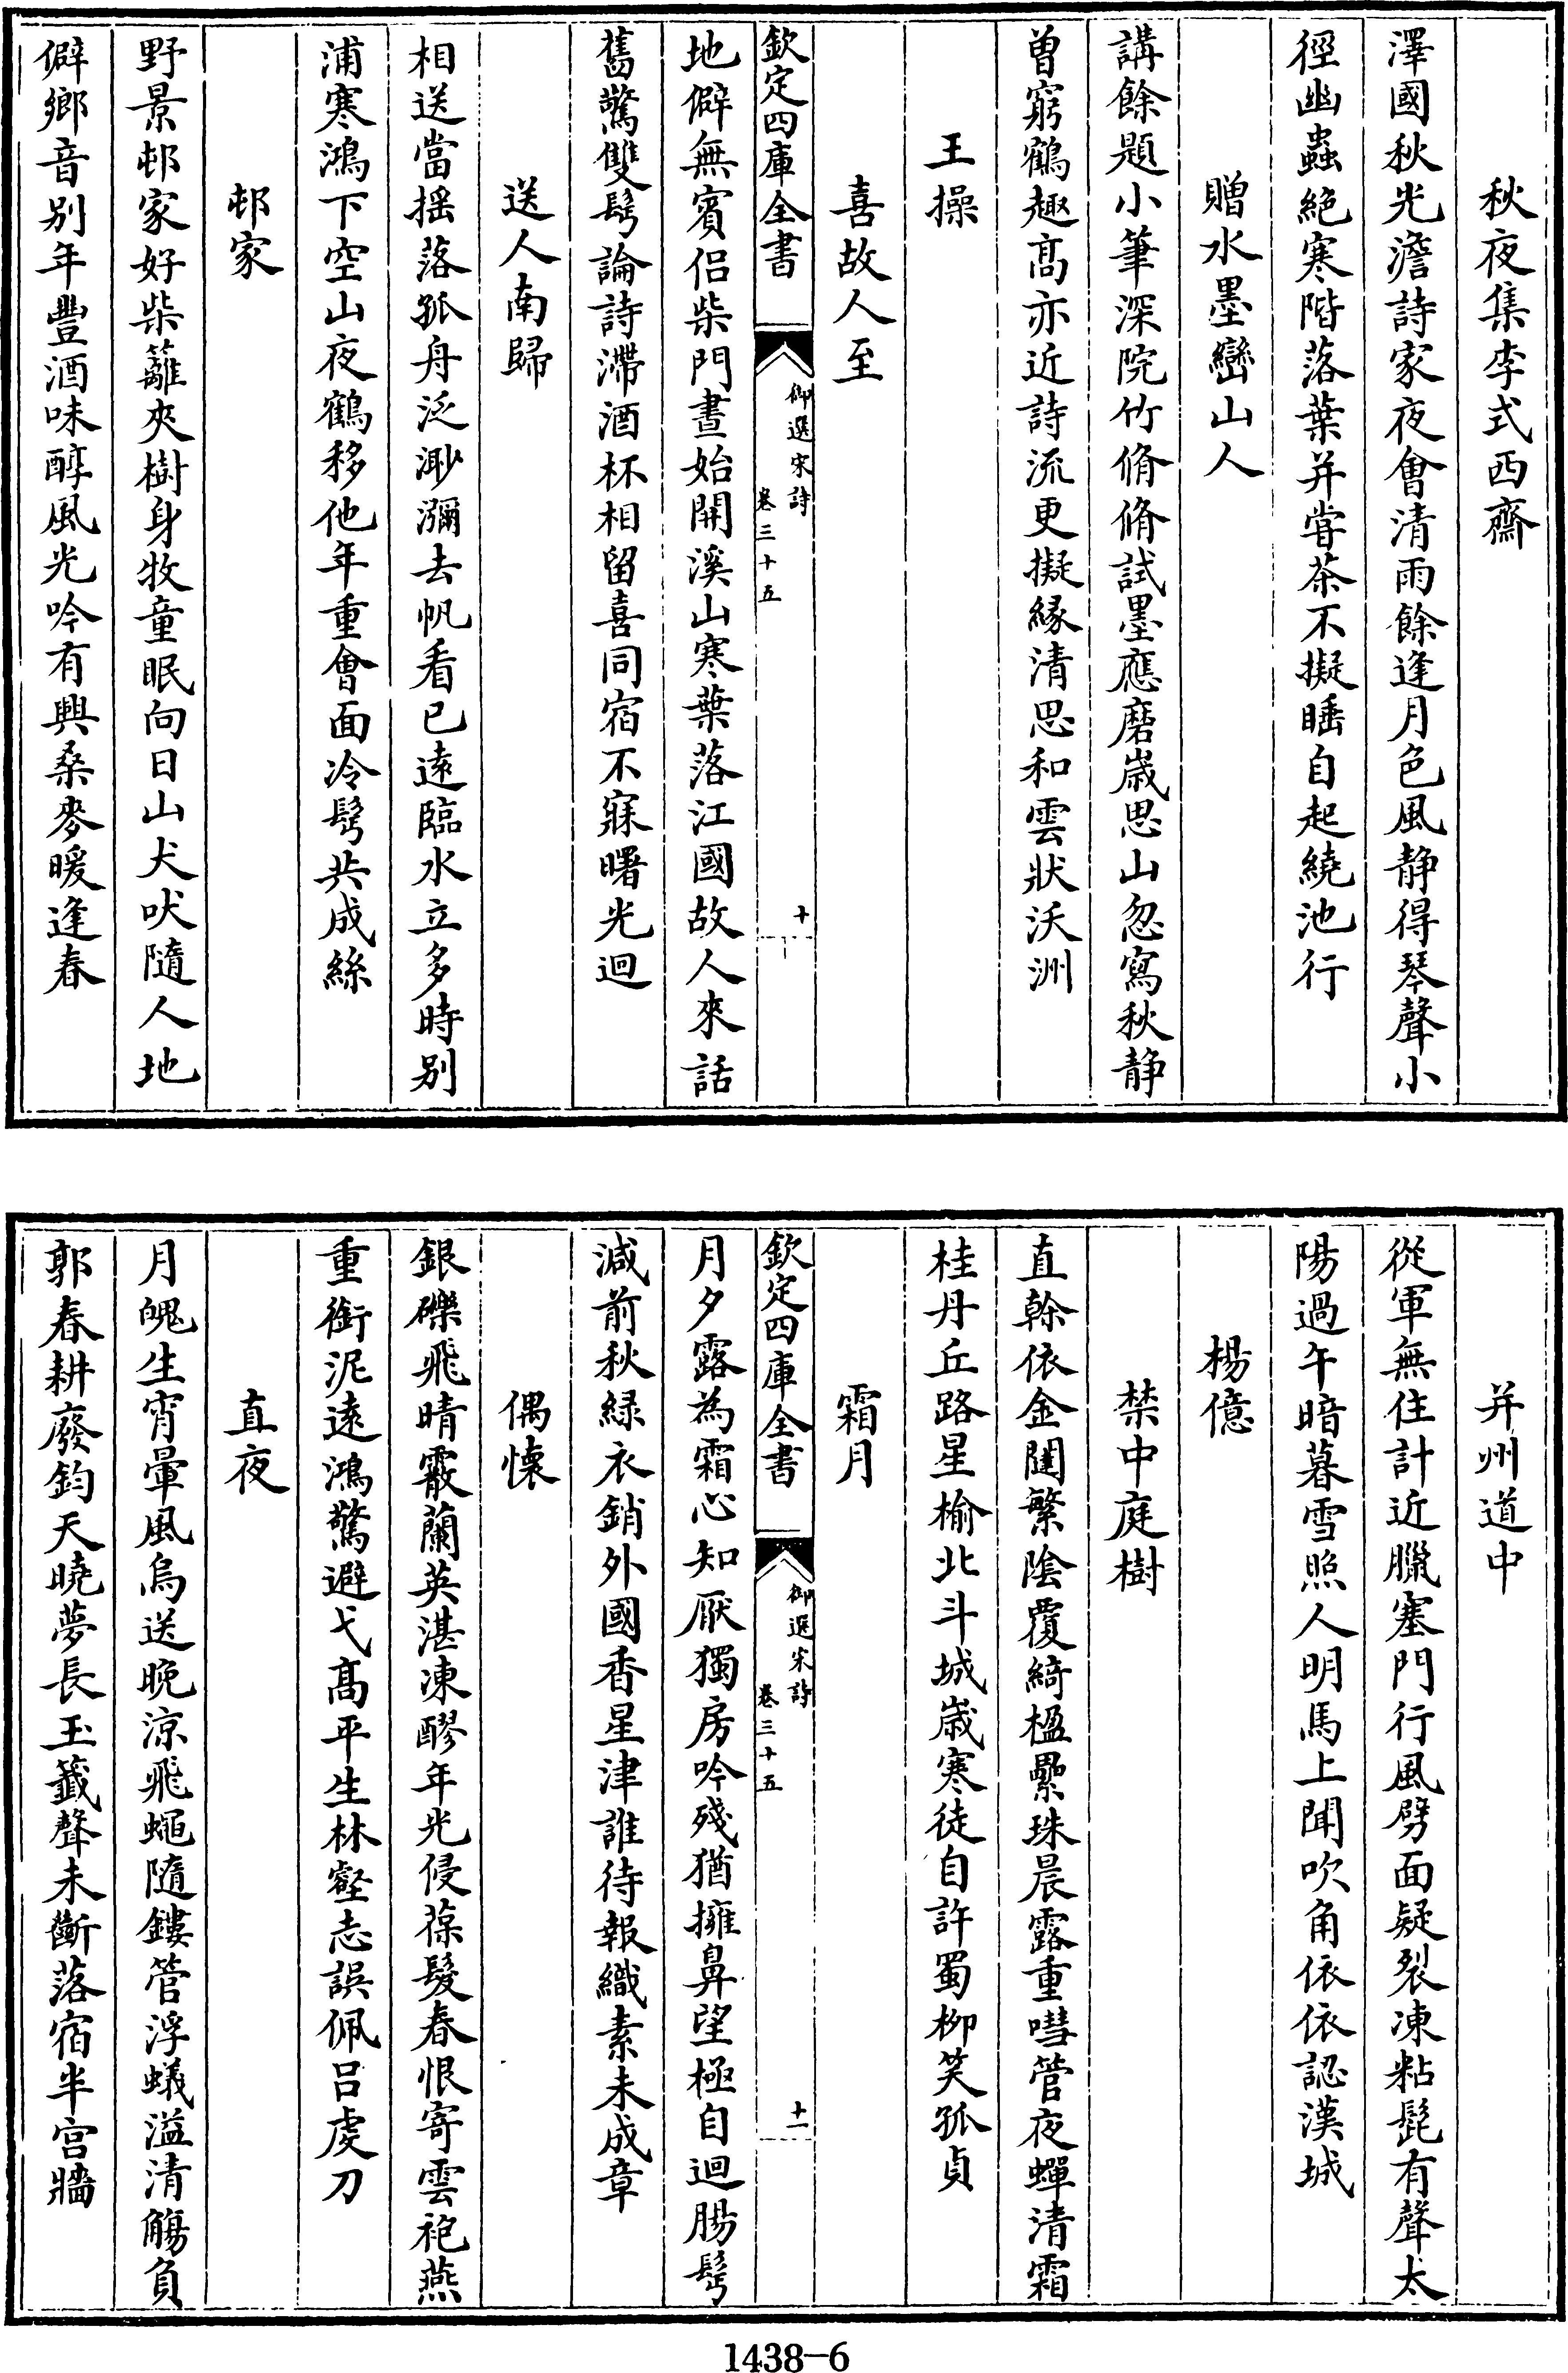 秋夜集李式西齋
澤國秋光澹詩家夜會清雨餘逢月色風静得琴聲小
徑幽蟲絶寒階落葉并甞茶不擬睡自起繞池行
贈水墨巒山人
講餘題小筆深院竹脩脩試墨應磨歲思山忽寫秋静
曽窮鶴趣髙亦近詩流更擬緣清思和雲狀沃洲
王操
喜故人至
欽定四庫全書
御選宋詩
卷三十五
十
地僻無賓侣柴門晝始開溪山寒葉落江國故人來話
舊驚雙鬂論詩滯酒杯相留喜同宿不寐曙光迴
送人南歸
相送當揺落孤舟泛渺瀰去帆看已遠臨水立多時别
浦寒鴻下空山夜鶴移他年重會面冷鬂共成絲
邨家
野景邨家好柴籬夾樹身牧童眠向日山犬吠隨人地
僻鄉音别年豐酒味醇風光吟有興桑麥暖逢春
并州道中
從軍無住計近臘塞門行風劈面疑裂凍粘髭有聲太
陽過午暗暮雪照人明馬上聞吹角依依認漢城
楊億
禁中庭樹
直榦依金闥繁陰覆綺楹纍珠晨露重嘒管夜蟬清霜
桂丹丘路星榆北斗城歲寒徒自許蜀柳笑孤貞
霜月
欽定四庫全書
御選宋詩
卷三十五
十一
月夕露為霜心知厭獨房吟殘猶擁鼻望極自迴腸鬂
減前秋緑衣銷外國香星津誰待報織素未成章
偶懐
銀礫飛晴霰蘭英湛凍醪年光侵葆髮春恨寄雲袍燕
重銜泥遠鴻驚避弋髙平生林壑志誤佩吕虔刀
直夜
月魄生宵暈風烏送晚凉飛蠅隨鏤管浮蟻溢清觴負
郭春耕廢鈞天曉夢長玉籤聲未斷落宿半宫牆
1438-6